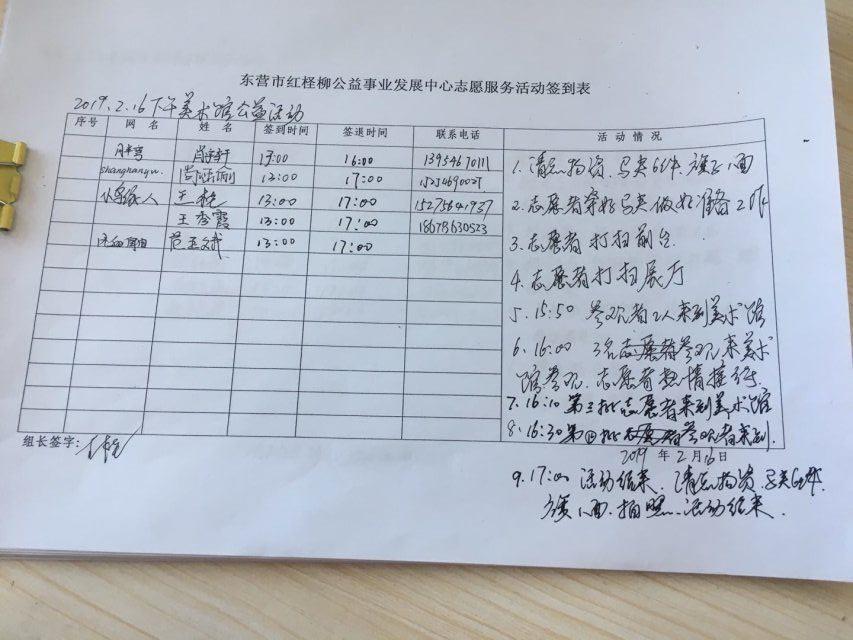 东营市红柽柳公益事业发展中心志愿服务活动签到表
2019.2.16下午美术馆公益活动
序号 网 名 姓 名 签到时间 签退时间 联系电话 活 动 情 况
17:00 16:00 13954670111
shanghanyw. 13:00 17:00
王艳 13:00 17:00 15275641937
王秀霞 13:00 17:00 18678630523
13:00 17:00
1.清点物资.马夹6件.旗子1面
2.志愿者穿好马夹做好准备工作
3.志愿者打扫前台.
4.志愿者打扫展厅
5.15:50 参观者2人来到美术馆
6.16:00 3名志愿者参观来美术
馆参观.志愿者热情接待.
7.16:10第三批志愿者来到美术馆
8.16:30第四批志愿者参观者来到.
组长签字:
2019 年 2 月 16 日
9.17:00 活动结束.清点物资.马夹6件.
旗1面.拍照.活动结束.